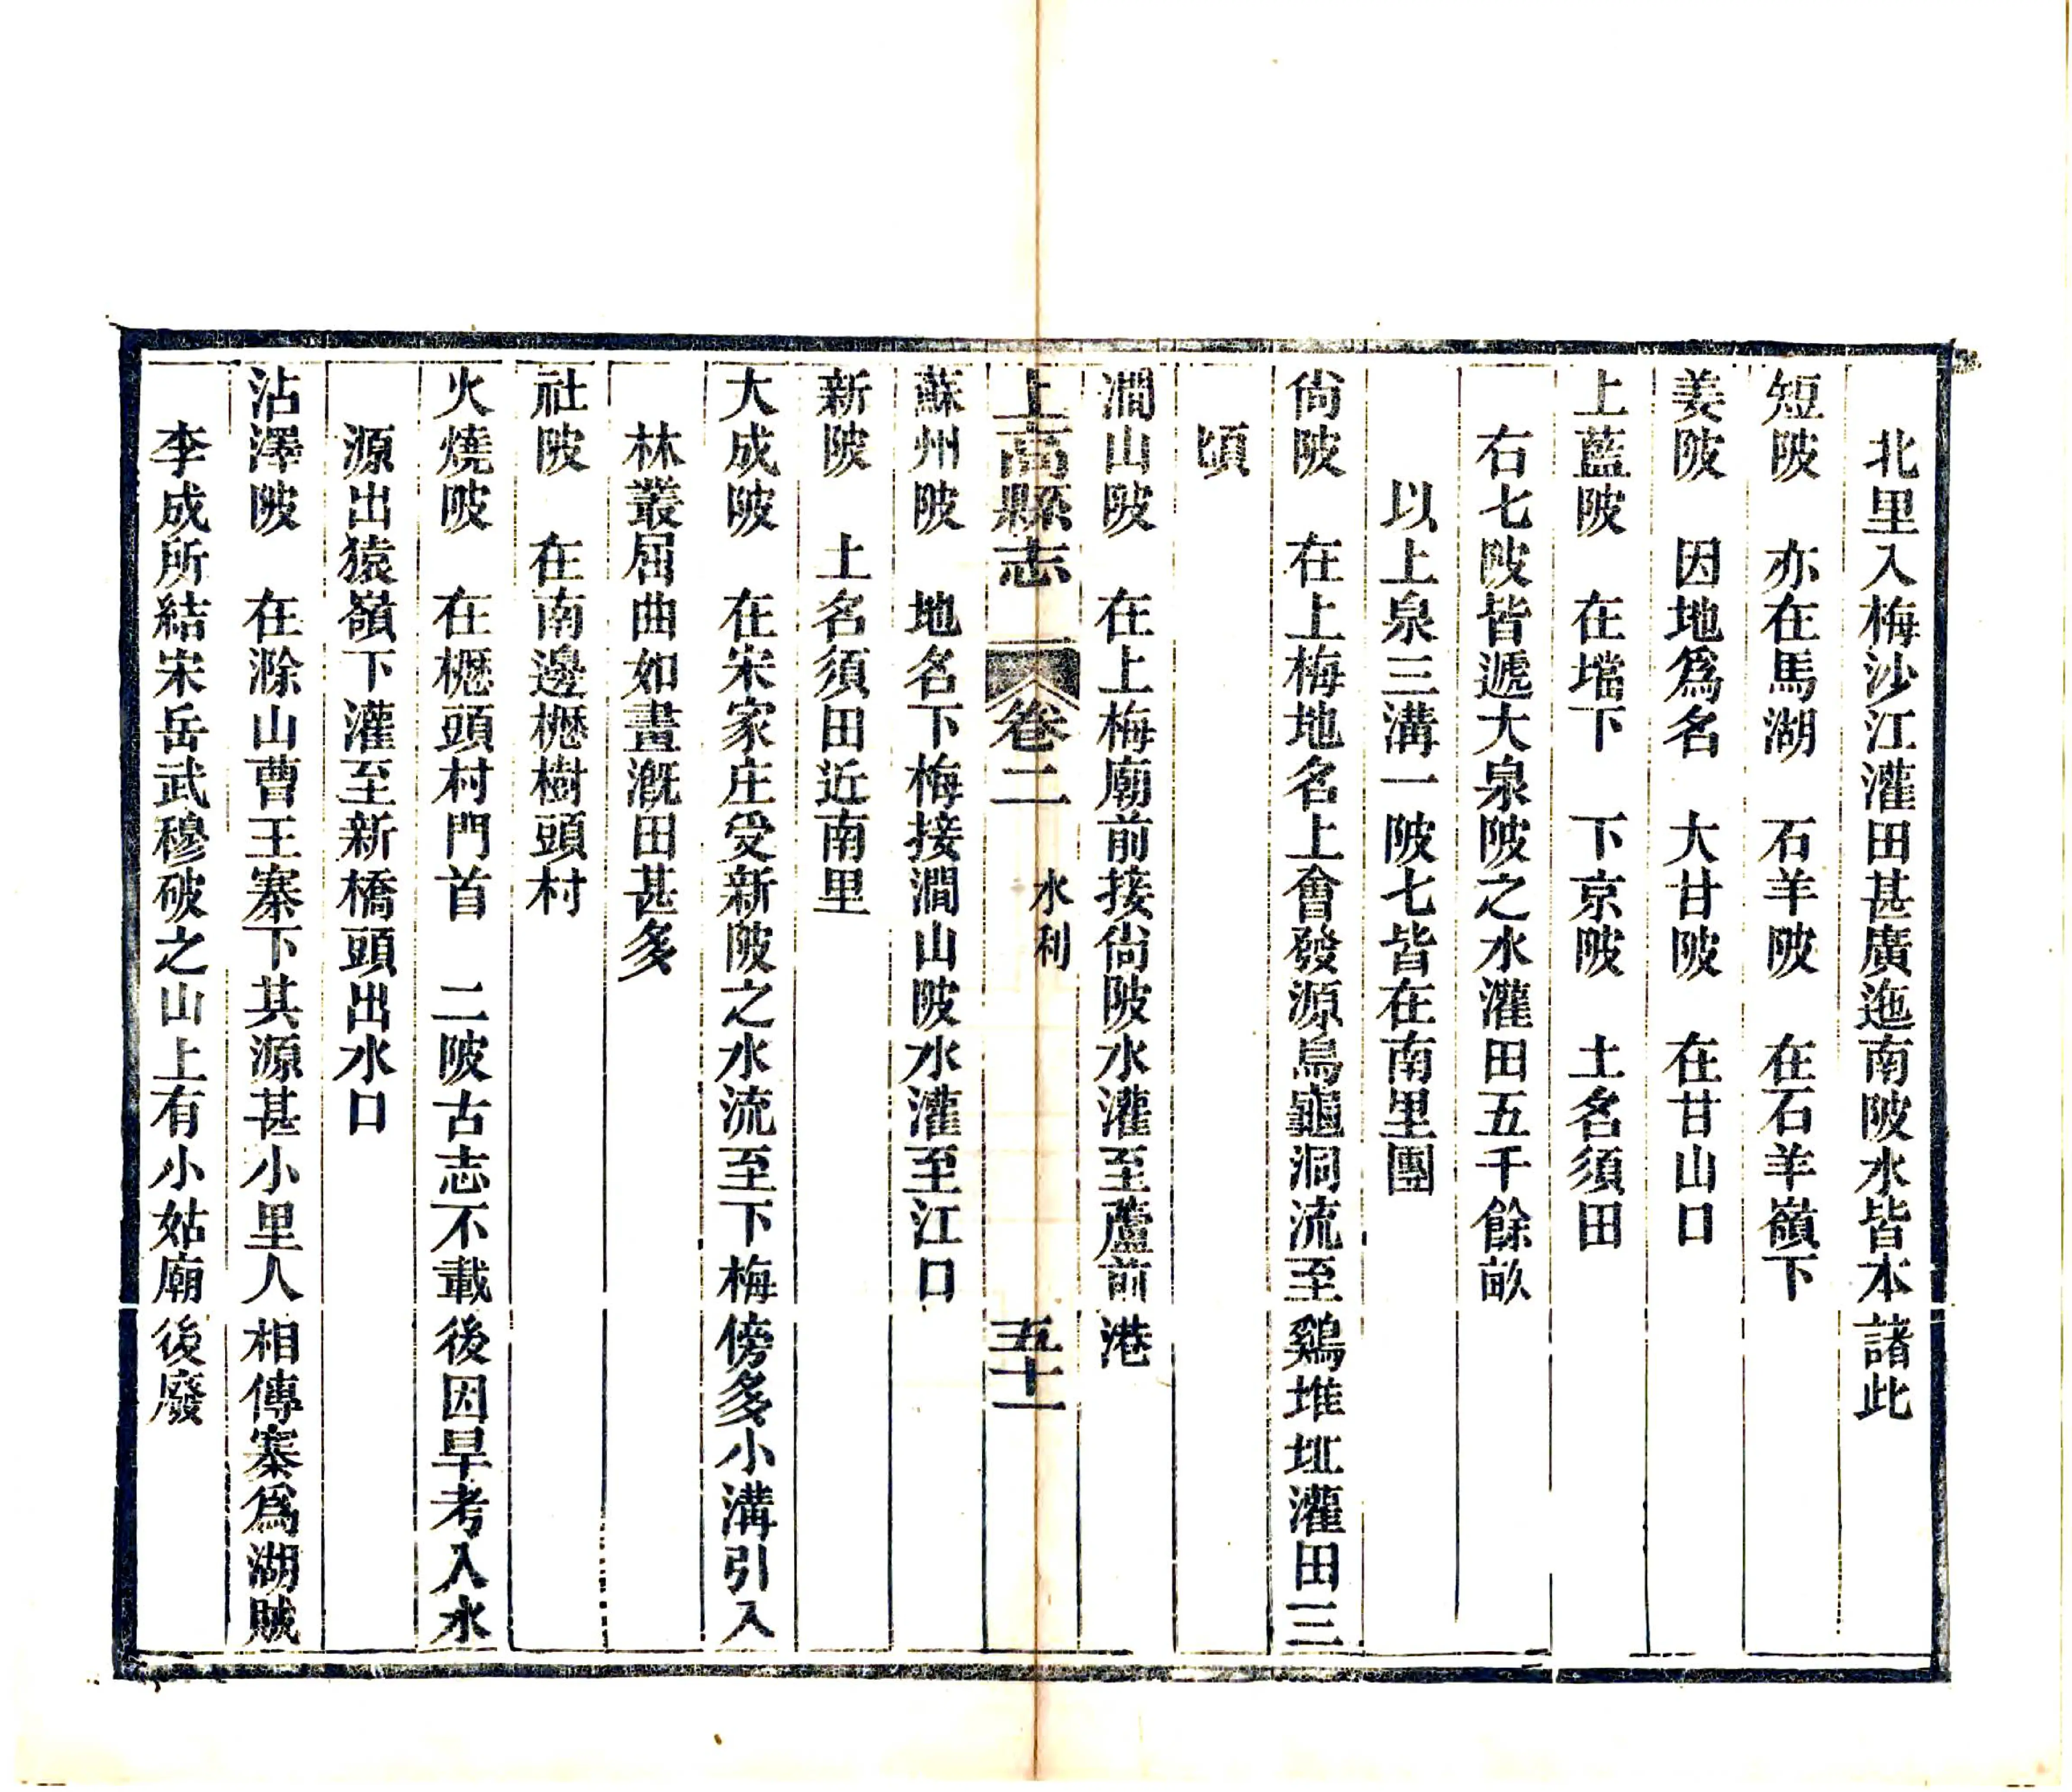 北里入梅沙江灌田甚廣迤南陂水皆本諸此
短陂　亦在馬湖　石羊陂　在石羊嶺下
姜陂　因地爲名　大甘陂　在甘山口
上藍陂　在壋下　下京陂　土名須田
右七陂皆遞大泉陂之水灌田五千餘畝
以上泉三溝一陂七皆在南里團
尙陂　在上梅地名上會發源烏龜洞流至鷄堆坵灌田三
頃
澗山陂　在上梅廟前接尙陂水灌至蘆前港
上高縣志　卷二　水利　五十一
蘇州陂　地名下梅接澗山陂水灌至江口
新陂　土名須田近南里
大成陂　在宋家庄受新陂之水流至下梅傍多小溝引入
林叢屈曲如畫漑田甚多
社陂　在南邊櫪樹頭村
火燒陂　在櫪頭村門首　二陂古志不載後因旱考入水
源出猿嶺下灌至新橋頭出水口
沾澤陂　在滁山曹王寨下其源甚小里人相傳寨爲湖賊
李成所結宋岳武穆破之山上有小姑廟後廢